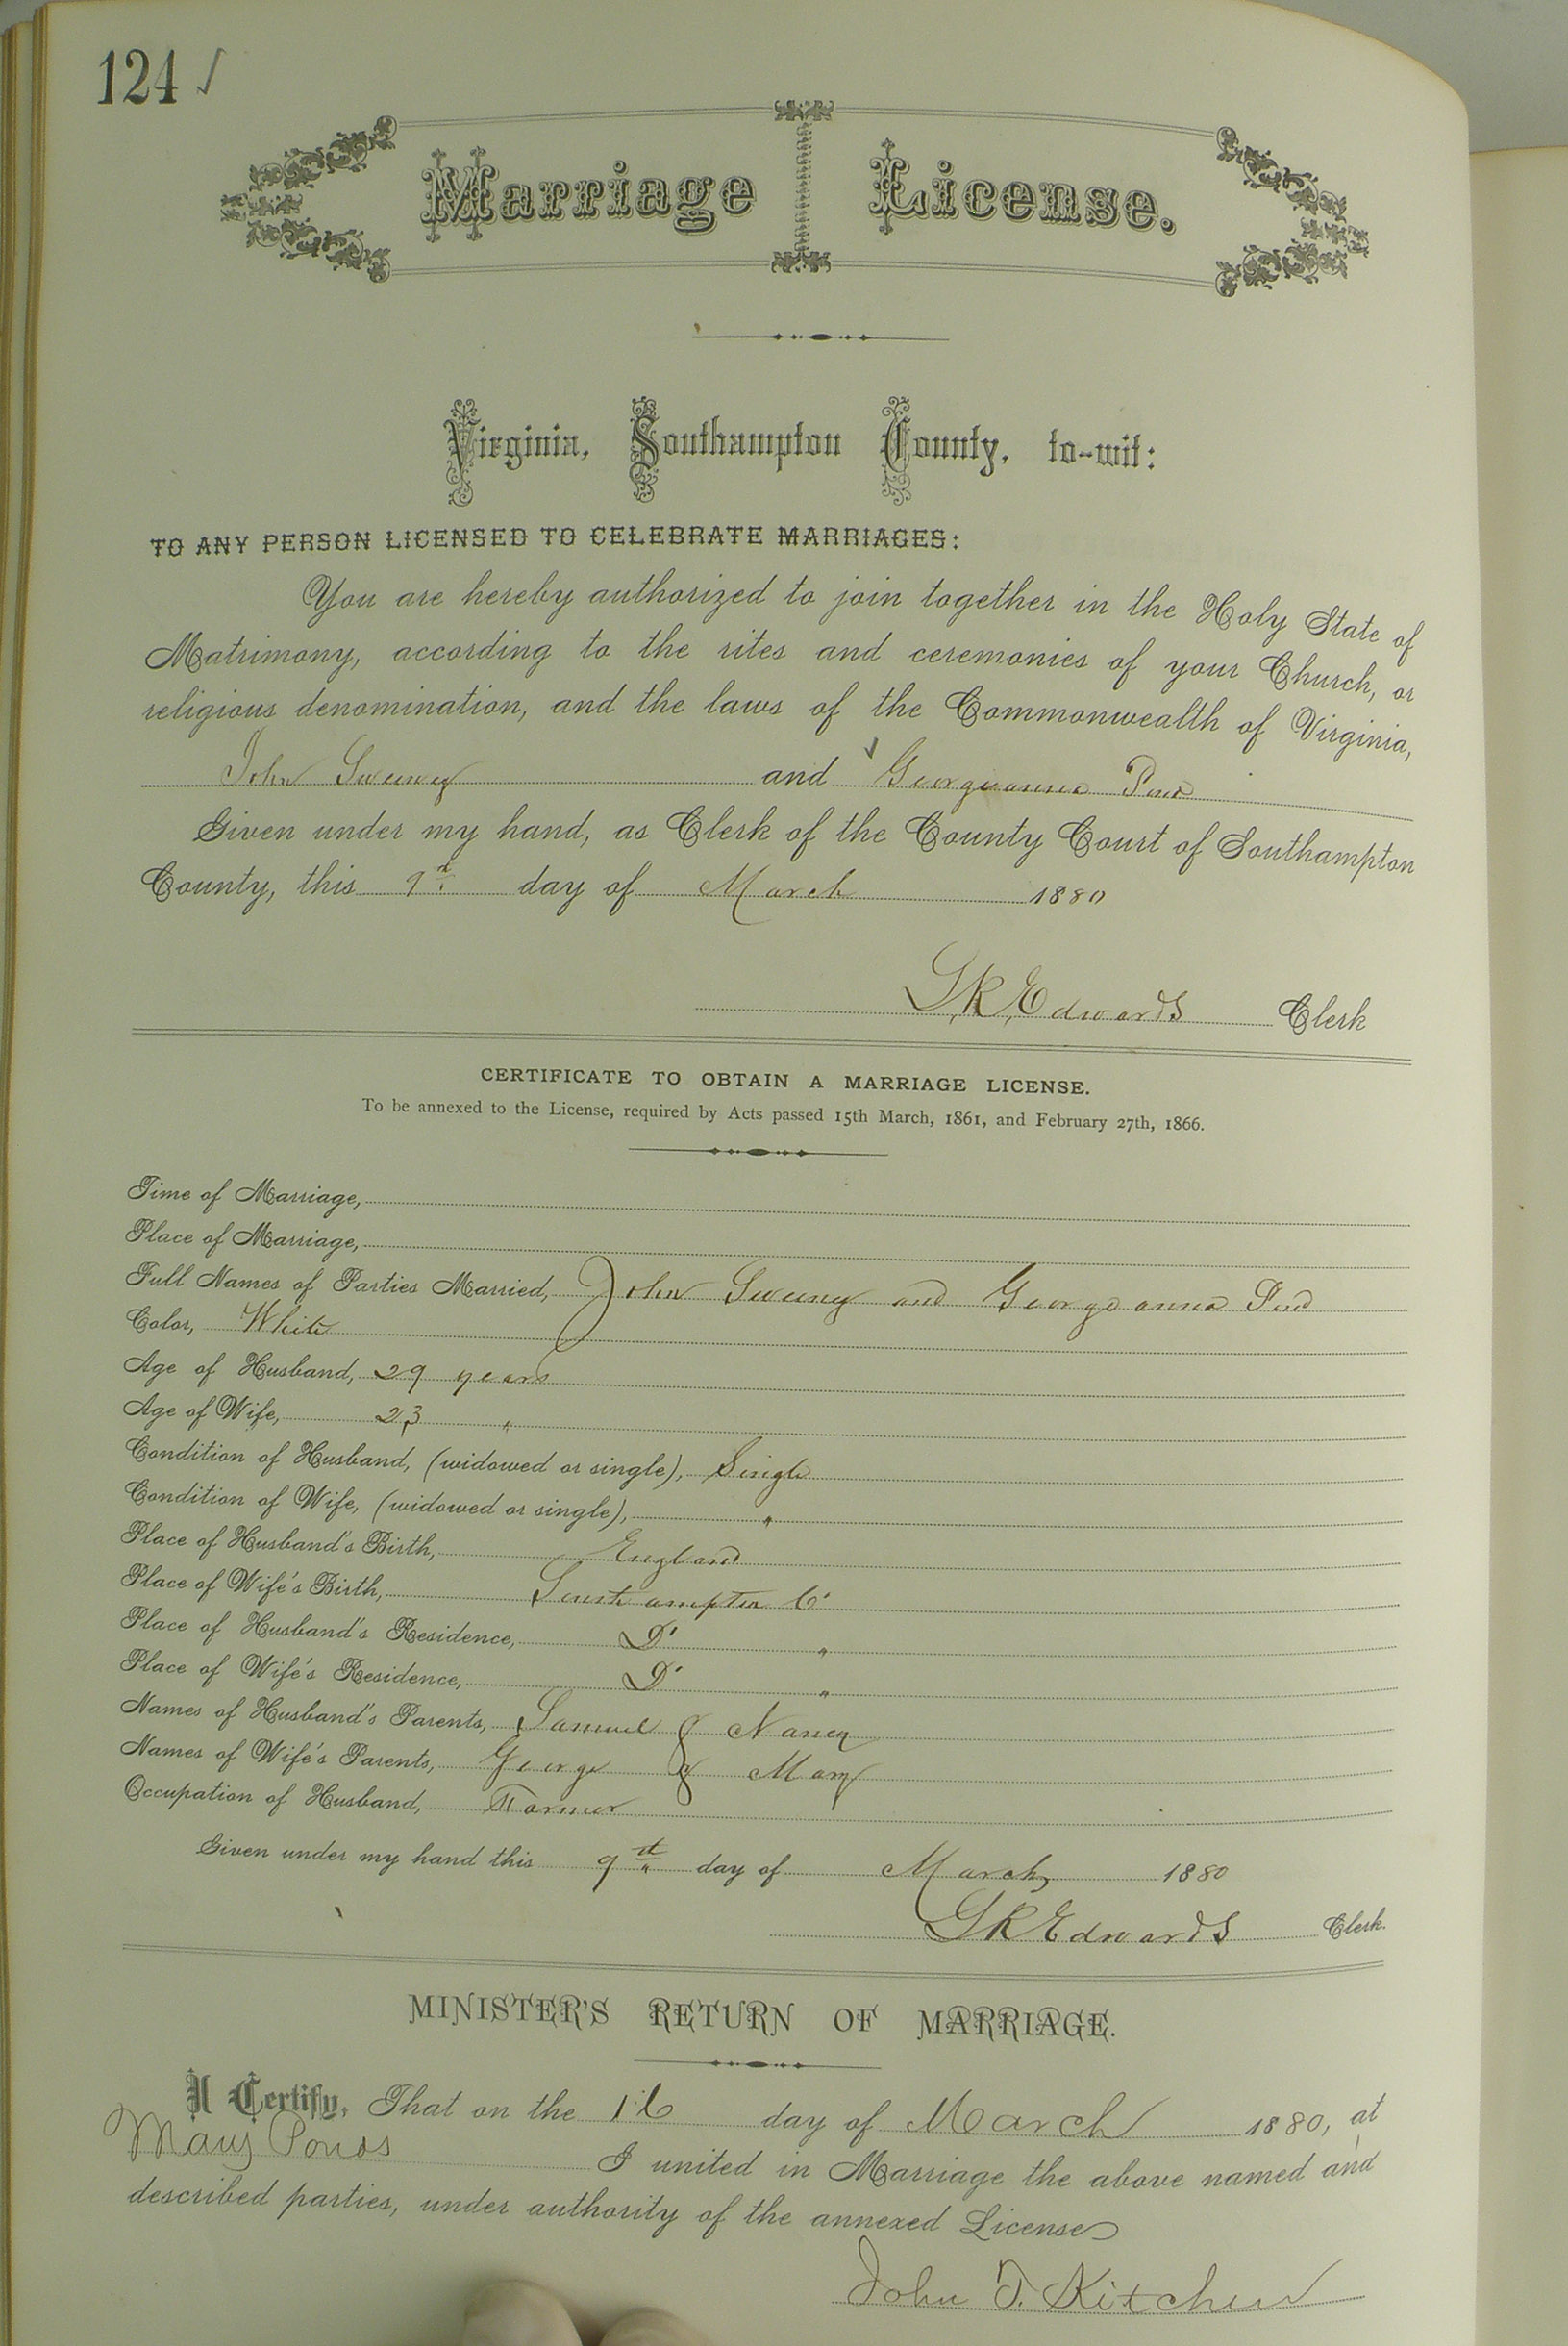 124 ✓
Marriage License.
Virginia, Southampton County, to-wit:
TO ANY PERSON LICENSED TO CELEBRATE MARRIAGES:
You are hereby authorized to join together in the Holy State of
Matrimony, according to the rites and ceremonies of your Church, or
religious denomination, and the laws of the Commonwealth of Virginia,
John Sweeney and Georgeanna
Given under my hand, as Clerk of the County Court of Southampton
County, this day of March 1880
L.R. Edwards Clerk
CERTIFICATE TO OBTAIN A MARRIAGE LICENSE.
To be annexed to the License, required by Acts passed 15th March, 1861, and February 27th, 1866.
Time of Marriage,
Place of Marriage,
Full Names of Parties Married, John Sweeney and Georgeanna
Color, White
Age of Husband, 29 years
Age of Wife, 23 "
Condition of Husband, (widowed or single), Single
Condition of Wife, (widowed or single), "
Place of Husband's Birth, England
Place of Wife's Birth, Southampton Co
Place of Husband's Residence, Do "
Place of Wife's Residence, Do "
Names of Husband's Parents, Samuel & Nancy
Names of Wife's Parents, George & Mary
Occupation of Husband, Farmer
Given under my hand this day of March 1880
L R Edwards Clerk.
MINISTER'S RETURN OF MARRIAGE.
I Certify, That on the day of March 1880, at
Mary I united in Marriage the above named and
described parties, under authority of the annexed License
John T. Kitchen